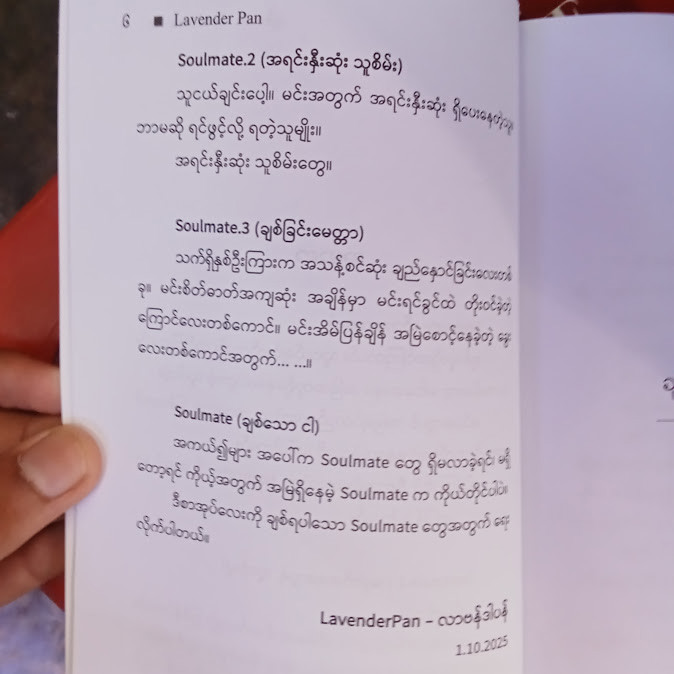 ၆ ■ Lavender Pan
Soulmate.2 (အရင်းနှီးဆုံး သူစိမ်း)
သူငယ်ချင်းပေါ့။ မင်းအတွက် အရင်းနှီးဆုံး ရှိပေးနေတဲ့သူ။
ဘာမဆို ရင်ဖွင့်လို့ ရတဲ့သူမျိုး။
အရင်းနှီးဆုံး သူစိမ်းတွေ။
Soulmate.3 (ချစ်ခြင်းမေတ္တာ)
သက်ရှိနှစ်ဦးကြားက အသန့်စင်ဆုံး ချည်နှောင်ခြင်းလေးတစ်
ခု။ မင်းစိတ်ဓာတ်အကျဆုံး အချိန်မှာ မင်းရင်ခွင်ထဲ တိုးဝင်ခဲ့တဲ့
ကြောင်လေးတစ်ကောင်။ မင်းအိမ်ပြန်ချိန် အမြဲစောင့်နေခဲ့တဲ့ ခွေး
လေးတစ်ကောင်အတွက်... ...။
Soulmate (ချစ်သော ငါ)
အကယ်၍များ အပေါ်က Soulmate တွေ ရှိမလာခဲ့ရင်၊ မရှိ
တော့ရင် ကိုယ့်အတွက် အမြဲရှိနေမဲ့ Soulmate က ကိုယ်တိုင်ပါပဲ။
ဒီစာအုပ်လေးကို ချစ်ရပါသော Soulmate တွေအတွက် ရေး
လိုက်ပါတယ်။
LavenderPan – လာဗန်ဒါပန်
1.10.2025